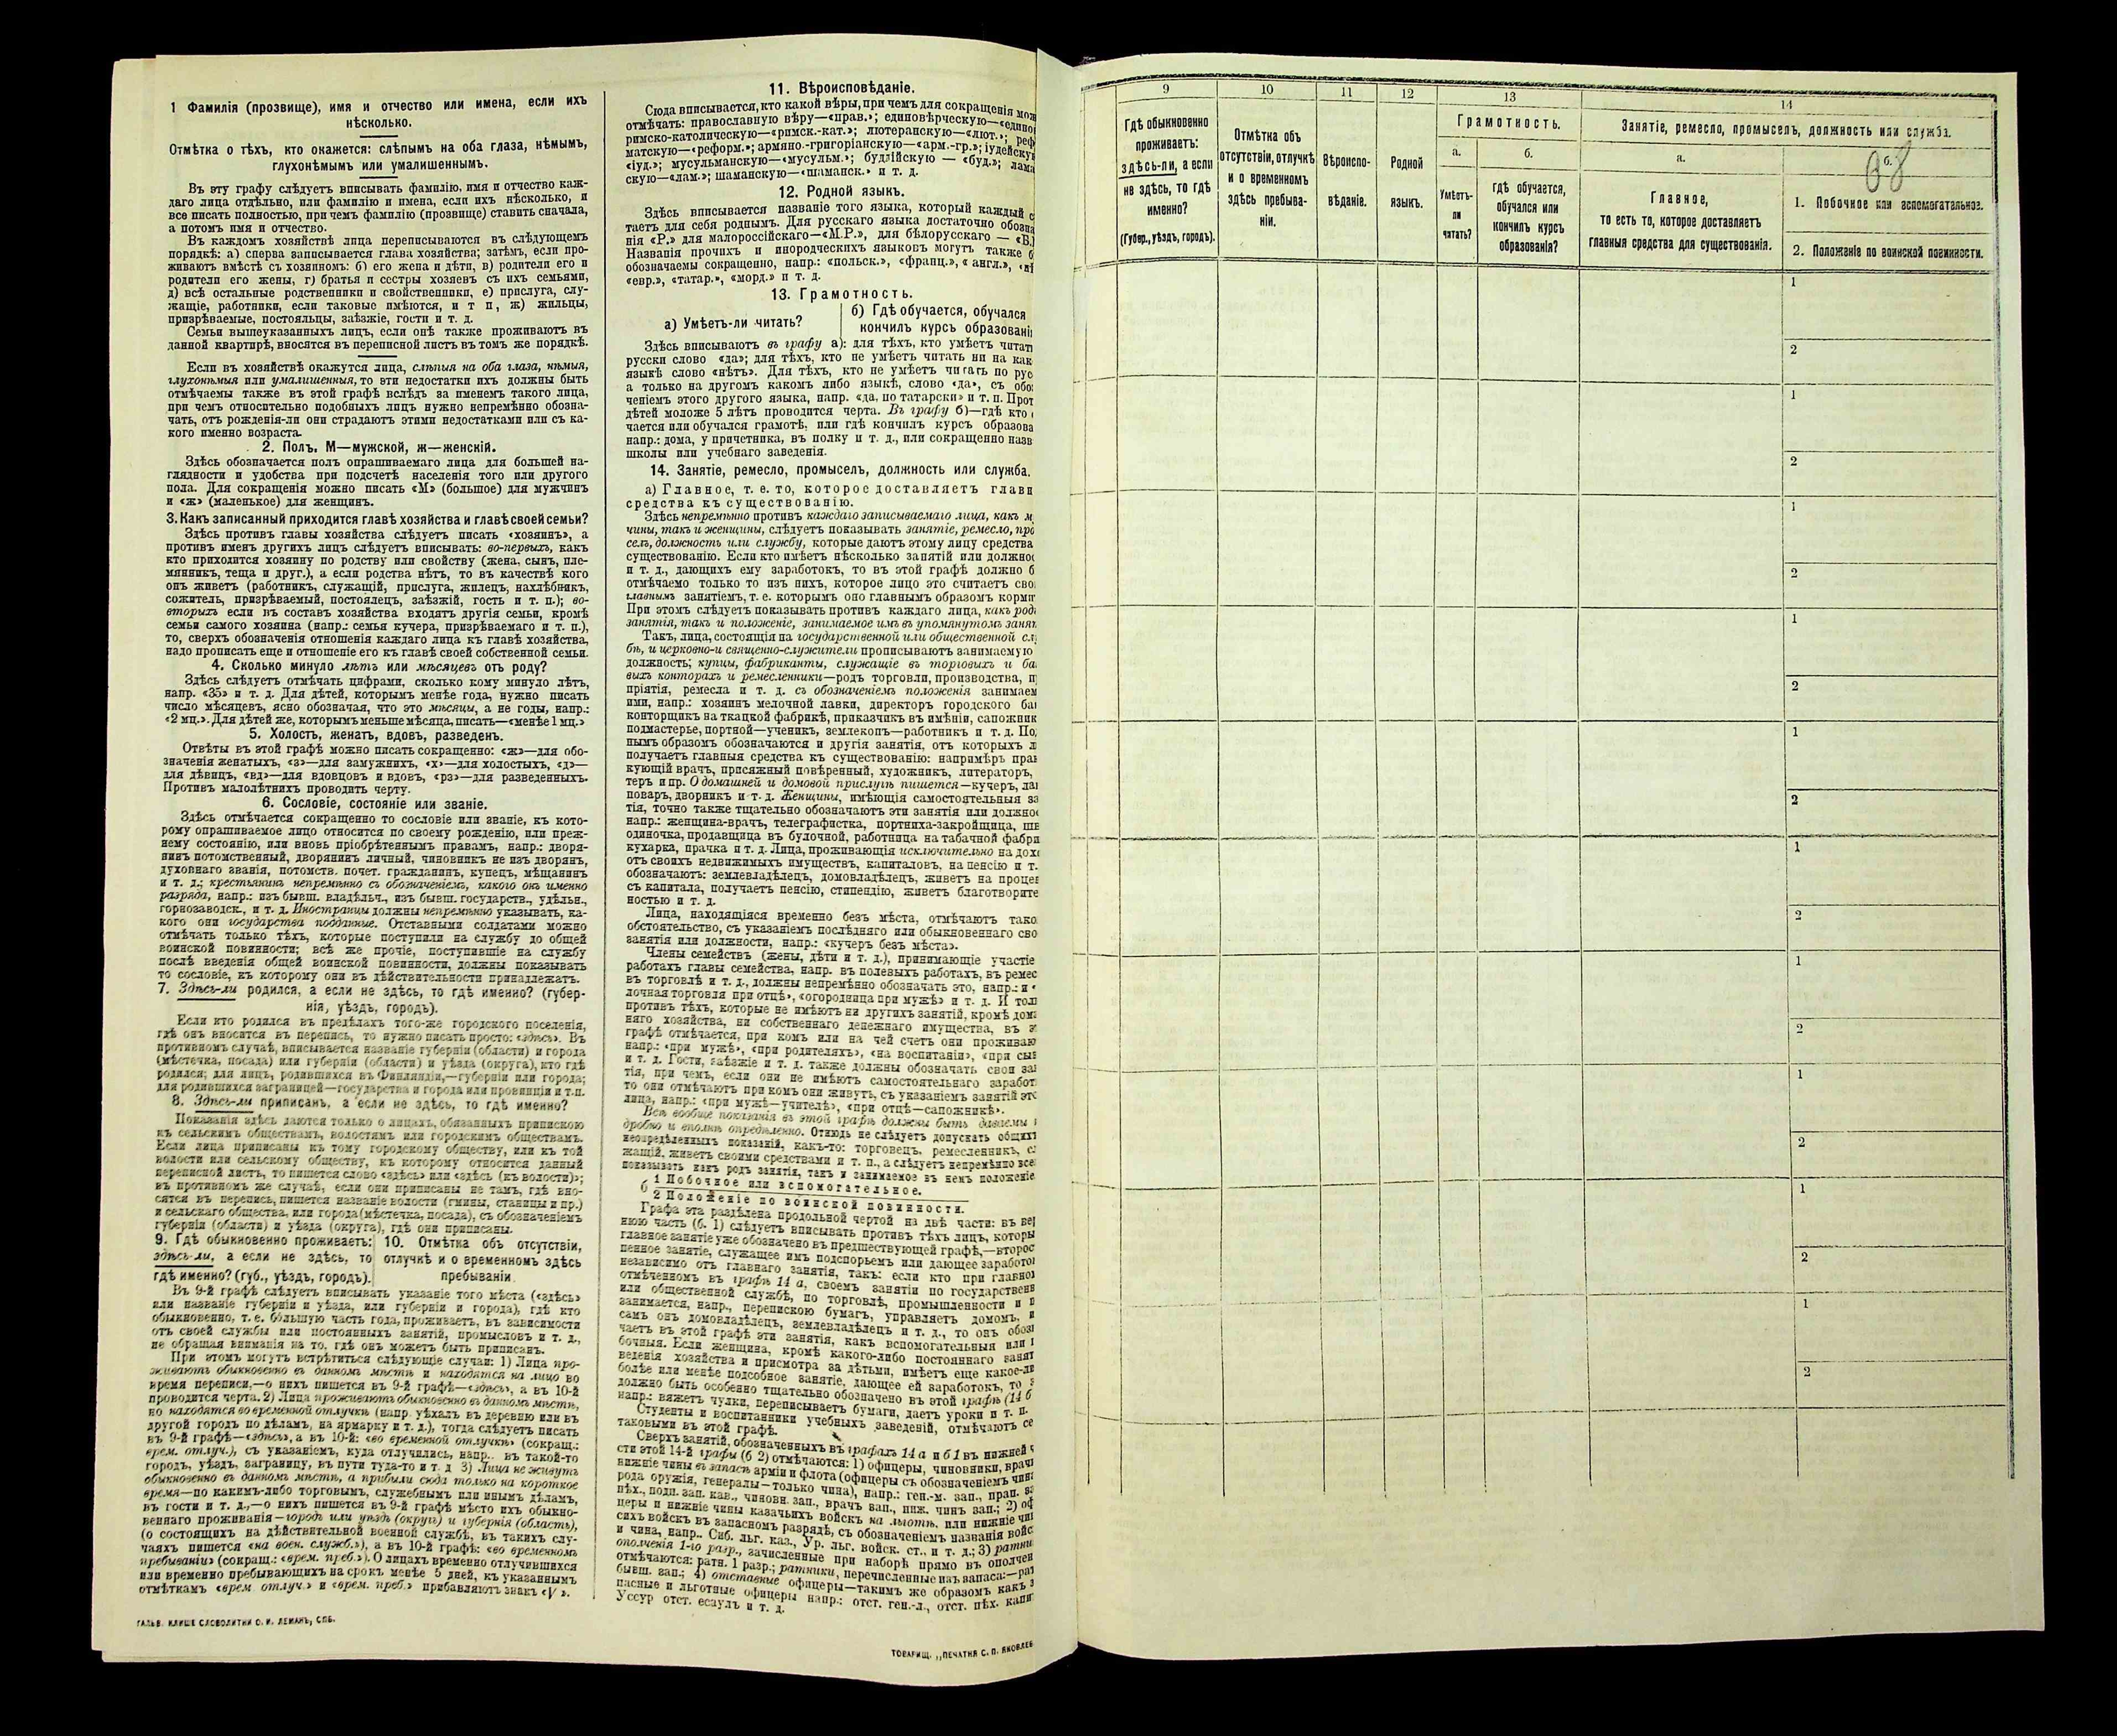 1 Фамилія (прозвище), имя и отчество или имена, если ихъ
нѣсколько.
Отмѣтка о тѣхъ, кто окажется: слѣпымъ на оба глаза, нѣмымъ,
глухонѣмымъ или умалишеннымъ.
Въ эту графу слѣдуетъ вписывать фамилію, имя и отчество каж-
даго лица отдѣльно, или фамилію и имена, если ихъ нѣсколько, и
все писать полностью, при чемъ фамилію (прозвище) ставить сначала,
а потомъ имя и отчество.
Въ каждомъ хозяйствѣ лица переписываются въ слѣдующемъ
порядкѣ: а) сперва записывается глава хозяйства; затѣмъ, если про-
живаютъ вмѣстѣ съ хозяиномъ: б) его жена и дѣти, в) родители его и
родители его жены, г) братья и сестры хозяевъ съ ихъ семьями,
д) всѣ остальные родственники и свойственники, е) прислуга, слу-
жащіе, работники, если таковые имѣются, и т п, ж) жильцы,
призрѣваемые, постояльцы, заѣзжіе, гости и т. д.
Семьи вышеуказанныхъ лицъ, если онѣ также проживаютъ въ
данной квартирѣ, вносятся въ переписной листъ въ томъ же порядкѣ.
Если въ хозяйствѣ окажутся лица, слѣпыя на оба глаза, нѣмыя,
глухонѣмыя или умалишенныя, то эти недостатки ихъ должны быть
отмѣчаемы также въ этой графѣ вслѣдъ за именемъ такого лица,
при чемъ относительно подобныхъ лицъ нужно непремѣнно обозна-
чать, отъ рожденія-ли они страдаютъ этими недостатками или съ ка-
кого именно возраста.
2. Полъ. М—мужской, ж—женскій.
Здѣсь обозначается полъ опрашиваемаго лица для большей на-
глядности и удобства при подсчетѣ населенія того или другого
пола. Для сокращенія можно писать «М» (большое) для мужчинъ
и «ж» (маленькое) для женщинъ.
3. Какъ записанный приходится главѣ хозяйства и главѣ своей семьи?
Здѣсь противъ главы хозяйства слѣдуетъ писать «хозяинъ», а
противъ именъ другихъ лицъ слѣдуетъ вписывать: во-первыхъ, какъ
кто приходится хозяину по родству или свойству (жена, сынъ, пле-
мянникъ, теща и друг.), а если родства нѣтъ, то въ качествѣ кого
онъ живетъ (работникъ, служащій, прислуга, жилецъ, нахлѣбникъ,
сожитель, призрѣваемый, постоялецъ, заѣзжій, гость и т. п.); во-
вторыхъ если въ составъ хозяйства входятъ другія семьи, кромѣ
семьи самого хозяина (напр.: семья кучера, призрѣваемаго и т. п.),
то, сверхъ обозначенія отношенія каждаго лица къ главѣ хозяйства,
надо прописать еще и отношеніе его къ главѣ своей собственной семьи.
4. Сколько минуло лѣтъ или мѣсяцевъ отъ роду?
Здѣсь слѣдуетъ отмѣчать цифрами, сколько кому минуло лѣтъ,
напр. «35» и т. д. Для дѣтей, которымъ менѣе года, нужно писать
число мѣсяцевъ, ясно обозначая, что это мѣсяцы, а не годы, напр.:
«2 мц.». Для дѣтей же, которымъ меньше мѣсяца, писать—«менѣе 1 мц.»
5. Холостъ, женатъ, вдовъ, разведенъ.
Отвѣты въ этой графѣ можно писать сокращенно: «ж»—для обо-
значенія женатыхъ, «з»—для замужнихъ, «х»—для холостыхъ, «д»—
для дѣвицъ, «вд»—для вдовцовъ и вдовъ, «рз»—для разведенныхъ.
Противъ малолѣтнихъ проводить черту.
6. Сословіе, состояніе или званіе.
Здѣсь отмѣчается сокращенно то сословіе или званіе, къ кото-
рому опрашиваемое лицо относится по своему рожденію, или преж-
нему состоянію, или вновь пріобрѣтеннымъ правамъ, напр.: дворя-
нинъ потомственный, дворянинъ личный, чиновникъ не изъ дворянъ,
духовнаго званія, потомств. почет. гражданинъ, купецъ, мѣщанинъ
и т. д.; крестьянинъ непремѣнно съ обозначеніемъ, какого онъ именно
разряда, напр.: изъ бывш. владѣльч., изъ бывш. государств., удѣльн.,
горнозаводск., и т. д. Иностранцы должны непремѣнно указывать, ка-
кого они государства подданные. Отставными солдатами можно
отмѣчать только тѣхъ, которые поступили на службу до общей
воинской повинности; всѣ же прочіе, поступившіе на службу
послѣ введенія общей воинской повинности, должны показывать
то сословіе, къ которому они въ дѣйствительности принадлежатъ.
7. Здѣсь-ли родился, а если не здѣсь, то гдѣ именно? (губер-
нія, уѣздъ, городъ).
Если кто родился въ предѣлахъ того-же городского поселенія,
гдѣ онъ вносится въ перепись, то нужно писать просто: «здѣсь». Въ
противномъ случаѣ, вписывается названіе губерніи (области) и города
(мѣстечка, посада) или губерніи (области) и уѣзда (округа), кто гдѣ
родился; для лицъ, родившихся въ Финляндіи,—губерніи или города;
для родившихся заграницей—государства и города или провинціи и т.п.
8. Здѣсь-ли приписанъ, а если не здѣсь, то гдѣ именно?
Показанія здѣсь даются только о лицахъ, обязанныхъ припискою
къ сельскимъ обществамъ, волостямъ или городскимъ обществамъ.
Если лица приписаны къ тому городскому обществу, или къ той
волости или сельскому обществу, къ которому относится данный
переписной листъ, то пишется слово «здѣсь» или «здѣсь (къ волости)»;
въ противномъ же случаѣ, если они приписаны не тамъ, гдѣ вно-
сятся въ перепись, пишется названіе волости (гмины, станицы и пр.)
и сельскаго общества, или города (мѣстечка, посада), съ обозначеніемъ
губерніи (области) и уѣзда (округа), гдѣ они приписаны.
9. Гдѣ обыкновенно проживаетъ:
здѣсь-ли, а если не здѣсь, то
гдѣ именно? (губ., уѣздъ, городъ).
10. Отмѣтка объ отсутствіи,
отлучкѣ и о временномъ здѣсь
пребываніи.
Въ 9-й графѣ слѣдуетъ вписывать указаніе того мѣста («здѣсь»
или названіе губерніи и уѣзда, или губерніи и города), гдѣ кто
обыкновенно, т. е. бо́льшую часть года, проживаетъ, въ зависимости
отъ своей службы или постоянныхъ занятій, промысловъ и т. д.,
не обращая вниманія на то, гдѣ онъ можетъ быть приписанъ.
При этомъ могутъ встрѣтиться слѣдующіе случаи: 1) Лица про-
живаютъ обыкновенно въ данномъ мѣстѣ и находятся на лицо во
время переписи,—о нихъ пишется въ 9-й графѣ—«здѣсь», а въ 10-й
проводится черта. 2) Лица проживаютъ обыкновенно въ данномъ мѣстѣ,
но находятся во временной отлучкѣ (напр. уѣхалъ въ деревню или въ
другой городъ по дѣламъ, на ярмарку и т. д.), тогда слѣдуетъ писать
въ 9-й графѣ—«здѣсь», а въ 10-й: «во временной отлучкѣ» (сокращ.:
врем. отлуч.), съ указаніемъ, куда отлучились, напр.. въ такой-то
городъ, уѣздъ, заграницу, въ пути туда-то и т. д 3) Лица не живутъ
обыкновенно въ данномъ мѣстѣ, а прибыли сюда только на короткое
время—по какимъ-либо торговымъ, служебнымъ или инымъ дѣламъ,
въ гости и т. д.,—о нихъ пишется въ 9-й графѣ мѣсто ихъ обыкно-
веннаго проживанія—городъ или уѣздъ (округъ) и губернія (область),
(о состоящихъ на дѣйствительной военной службѣ, въ такихъ слу-
чаяхъ пишется «на воен. служб.»), а въ 10-й графѣ: «во временномъ
пребываніи» (сокращ.: «врем. преб.»). О лицахъ временно отлучившихся
или временно пребывающихъ на срокъ менѣе 5 дней, къ указаннымъ
отмѣткамъ «врем. отлуч.» и «врем. преб.» прибавляютъ знакъ «V».
ГАЛЬВ. КЛИШЕ СЛОВОЛИТНИ О. И. ЛЕМАНЪ, СПБ.
11. Вѣроисповѣданіе.
Сюда вписывается, кто какой вѣры, при чемъ для сокращенія мож
отмѣчать: православную вѣру—«прав.»; единовѣрческую—«едино
римско-католическую—«римск.-кат.»; лютеранскую—«лют.»; реф
матскую—«реформ.»; армяно-григоріанскую—«арм.-гр.»; іудейску
«іуд.»; мусульманскую—«мусульм.»; буддійскую — «буд.»; лама
скую—«лам.»; шаманскую—«шаманск.» и т. д.
12. Родной языкъ.
Здѣсь вписывается названіе того языка, который каждый с
таетъ для себя роднымъ. Для русскаго языка достаточно обозна
нія «Р.» для малороссійскаго—«М.Р.», для бѣлорусскаго — «Б.
Названія прочихъ и инородческихъ языковъ могутъ также б
обозначаемы сокращенно, напр.: «польск.», «франц.», «англ.», «нѣ
«евр.», «татар.», «морд.» и т. д.
13. Грамотность.
а) Умѣетъ-ли читать?
б) Гдѣ обучается, обучался
кончилъ курсъ образовані
Здѣсь вписываютъ въ графу а): для тѣхъ, кто умѣетъ читат
русски слово «да»; для тѣхъ, кто не умѣетъ читать ни на как
языкѣ слово «нѣтъ». Для тѣхъ, кто не умѣетъ читать по рус
а только на другомъ какомъ либо языкѣ, слово «да», съ обо
ченіемъ этого другого языка, напр. «да, по татарски» и т. п. Прот
дѣтей моложе 5 лѣтъ проводится черта. Въ графу б)—гдѣ кто
чается или обучался грамотѣ, или гдѣ кончилъ курсъ образова
напр.: дома, у причетника, въ полку и т. д., или сокращенно назв
школы или учебнаго заведенія.
14. Занятіе, ремесло, промыселъ, должность или служба.
а) Главное, т. е. то, которое доставляетъ главн
средства къ существованію.
Здѣсь непремѣнно противъ каждаго записываемаго лица, какъ м
чины, такъ и женщины, слѣдуетъ показывать занятіе, ремесло, про
селъ, должность или службу, которые даютъ этому лицу средства
существованію. Если кто имѣетъ нѣсколько занятій или должнос
и т. д., дающихъ ему заработокъ, то въ этой графѣ должно б
отмѣчаемо только то изъ нихъ, которое лицо это считаетъ сво
главнымъ занятіемъ, т. е. которымъ оно главнымъ образомъ кормит
При этомъ слѣдуетъ показывать противъ каждаго лица, какъ род
занятія, такъ и положеніе, занимаемое имъ въ упомянутомъ занят
Такъ, лица, состоящія на государственной или общественной сл
бѣ, и церковно-и священно-служители прописываютъ занимаемую
должность; купцы, фабриканты, служащіе въ торговыхъ и ба
выхъ конторахъ и ремесленники—родъ торговли, производства, п
пріятія, ремесла и т. д. съ обозначеніемъ положенія занимаем
ими, напр.: хозяинъ мелочной лавки, директоръ городского бан
конторщикъ на ткацкой фабрикѣ, приказчикъ въ имѣніи, сапожник
подмастерье, портной—ученикъ, землекопъ—работникъ и т. д. По
нымъ образомъ обозначаются и другія занятія, отъ которыхъ л
получаетъ главныя средства къ существованію: напримѣръ прак
кующій врачъ, присяжный повѣренный, художникъ, литераторъ,
теръ и пр. О домашней и домовой прислугѣ пишется—кучеръ, ла
поваръ, дворникъ и т. д. Женщины, имѣющія самостоятельныя за
тія, точно также тщательно обозначаютъ эти занятія или должно
напр.: женщина-врачъ, телеграфистка, портниха-закройщица, шв
одиночка, продавщица въ булочной, работница на табачной фабри
кухарка, прачка и т. д. Лица, проживающія исключительно на дох
отъ своихъ недвижимыхъ имуществъ, капиталовъ, на пенсію и т.
обозначаютъ: землевладѣлецъ, домовладѣлецъ, живетъ на процен
съ капитала, получаетъ пенсію, стипендію, живетъ благотворите
ностью и т. д.
Лица, находящіяся временно безъ мѣста, отмѣчаютъ тако
обстоятельство, съ указаніемъ послѣдняго или обыкновеннаго сво
занятія или должности, напр.: «кучеръ безъ мѣста».
Члены семействъ (жены, дѣти и т. д.), принимающіе участіе
работахъ главы семейства, напр. въ полевыхъ работахъ, въ ремес
въ торговлѣ и т. д., должны непремѣнно обозначать это, напр.:
лочная торговля при отцѣ», «огородница при мужѣ» и т. д. И тол
противъ тѣхъ, которые не имѣютъ ни другихъ занятій, кромѣ дом
няго хозяйства, ни собственнаго денежнаго имущества, въ э
графѣ отмѣчается, при комъ или на чей счетъ они проживаю
напр.: «при мужѣ», «при родителяхъ», «на воспитаніи», «при сын
и т. д. Гости, заѣзжіе и т. д. также должны обозначать свои за
тія, при чемъ, если они не имѣютъ самостоятельнаго заработ
то они отмѣчаютъ при комъ они живутъ, съ указаніемъ занятій это
лица, напр.: «при мужѣ—учителѣ», «при отцѣ—сапожникѣ».
Всѣ вообще показанія въ этой графѣ должны быть даваемы
дробно и вполнѣ опредѣленно. Отнюдь не слѣдуетъ допускать общихъ
неопредѣленныхъ показаній, какъ-то: торговецъ, ремесленникъ, с
жащій, живетъ своими средствами и т. п., а слѣдуетъ непремѣнно все
показывать какъ родъ занятія, такъ и занимаемое въ немъ положеніе
б 1 Побочное или вспомогательное.
2 Положеніе по воинской повинности.
Графа эта раздѣлена продольной чертой на двѣ части: въ вер
нюю часть (б. 1) слѣдуетъ вписывать противъ тѣхъ лицъ, которы
главное занятіе уже обозначено въ предшествующей графѣ,—второс
пенное занятіе, служащее имъ подспорьемъ или дающее заработо
независимо отъ главнаго занятія, такъ: если кто при главно
отмѣченномъ въ графѣ 14 а, своемъ занятіи по государствени
или общественной службѣ, по торговлѣ, промышленности и п
занимается, напр., перепискою бумагъ, управляетъ домомъ, и
самъ онъ домовладѣлецъ, землевладѣлецъ и т. д., то онъ обоз
чаетъ въ этой графѣ эти занятія, какъ вспомогательныя или
бочныя. Если женщина, кромѣ какого-либо постояннаго занят
веденія хозяйства и присмотра за дѣтьми, имѣетъ еще какое-ли
болѣе или менѣе подсобное занятіе, дающее ей заработокъ, то э
должно быть особенно тщательно обозначено въ этой графѣ (14 б
напр.: вяжетъ чулки, переписываетъ бумаги, даетъ уроки и т. п.
Студенты и воспитанники учебныхъ заведеній, отмѣчаютъ се
таковыми въ этой графѣ.
Сверхъ занятій, обозначенныхъ въ графахъ 14 а и б1 въ нижней ч
сти этой 14-й графы (б 2) отмѣчаются: 1) офицеры, чиновники, врачи
нижніе чины въ запасѣ арміи и флота (офицеры съ обозначеніемъ чина
рода оружія, генералы—только чина), напр.: ген.-м. зап., прап. за
пѣх., подп. зап. кав., чиновн. зап., врачъ зап., ниж. чинъ зап.; 2) оф
церы и нижніе чины казачьихъ войскъ на льготѣ, или нижніе чи
сихъ войскъ въ запасномъ разрядѣ, съ обозначеніемъ названія войс
и чина, напр.. Сиб. льг. каз., Ур. льг. войск. ст., и т. д.; 3) ратни
ополченія 1-го разр., зачисленные при наборѣ прямо въ ополчен
отмѣчаются: ратн. 1 разр.; ратники, перечисленные изъ запаса:—рат
бывш. зап.; 4) отставные офицеры—такимъ же образомъ какъ з
пасные и льготные офицеры напр.: отст. ген.-л., отст. пѣх. капи
Уссур отст. есаулъ и т. д.
ТОВАРИЩ. „ПЕЧАТНЯ С. П. ЯКОВЛЕВ
9
10
11
12
13
14
Гдѣ обыкновенно
проживаетъ:
здѣсь-ли, а если
не здѣсь, то гдѣ
именно?
(Губер., уѣздъ, городъ).
Отмѣтка объ
отсутствіи, отлучкѣ
и о временномъ
здѣсь пребыва-
ніи.
Вѣроиспо-
вѣданіе.
Родной
языкъ.
Грамотность.
а.
Умѣетъ-
ли
читать?
б.
гдѣ обучается,
обучался или
кончилъ курсъ
образованія?
Занятіе, ремесло, промыселъ, должность или служба.
а.
Главное,
то есть то, которое доставляетъ
главныя средства для существованія.
б.
68
1. Побочное или вспомогательное.
2. Положеніе по воинской повинности.
1
2
1
2
1
2
1
2
1
2
1
2
1
2
1
2
1
2
1
2